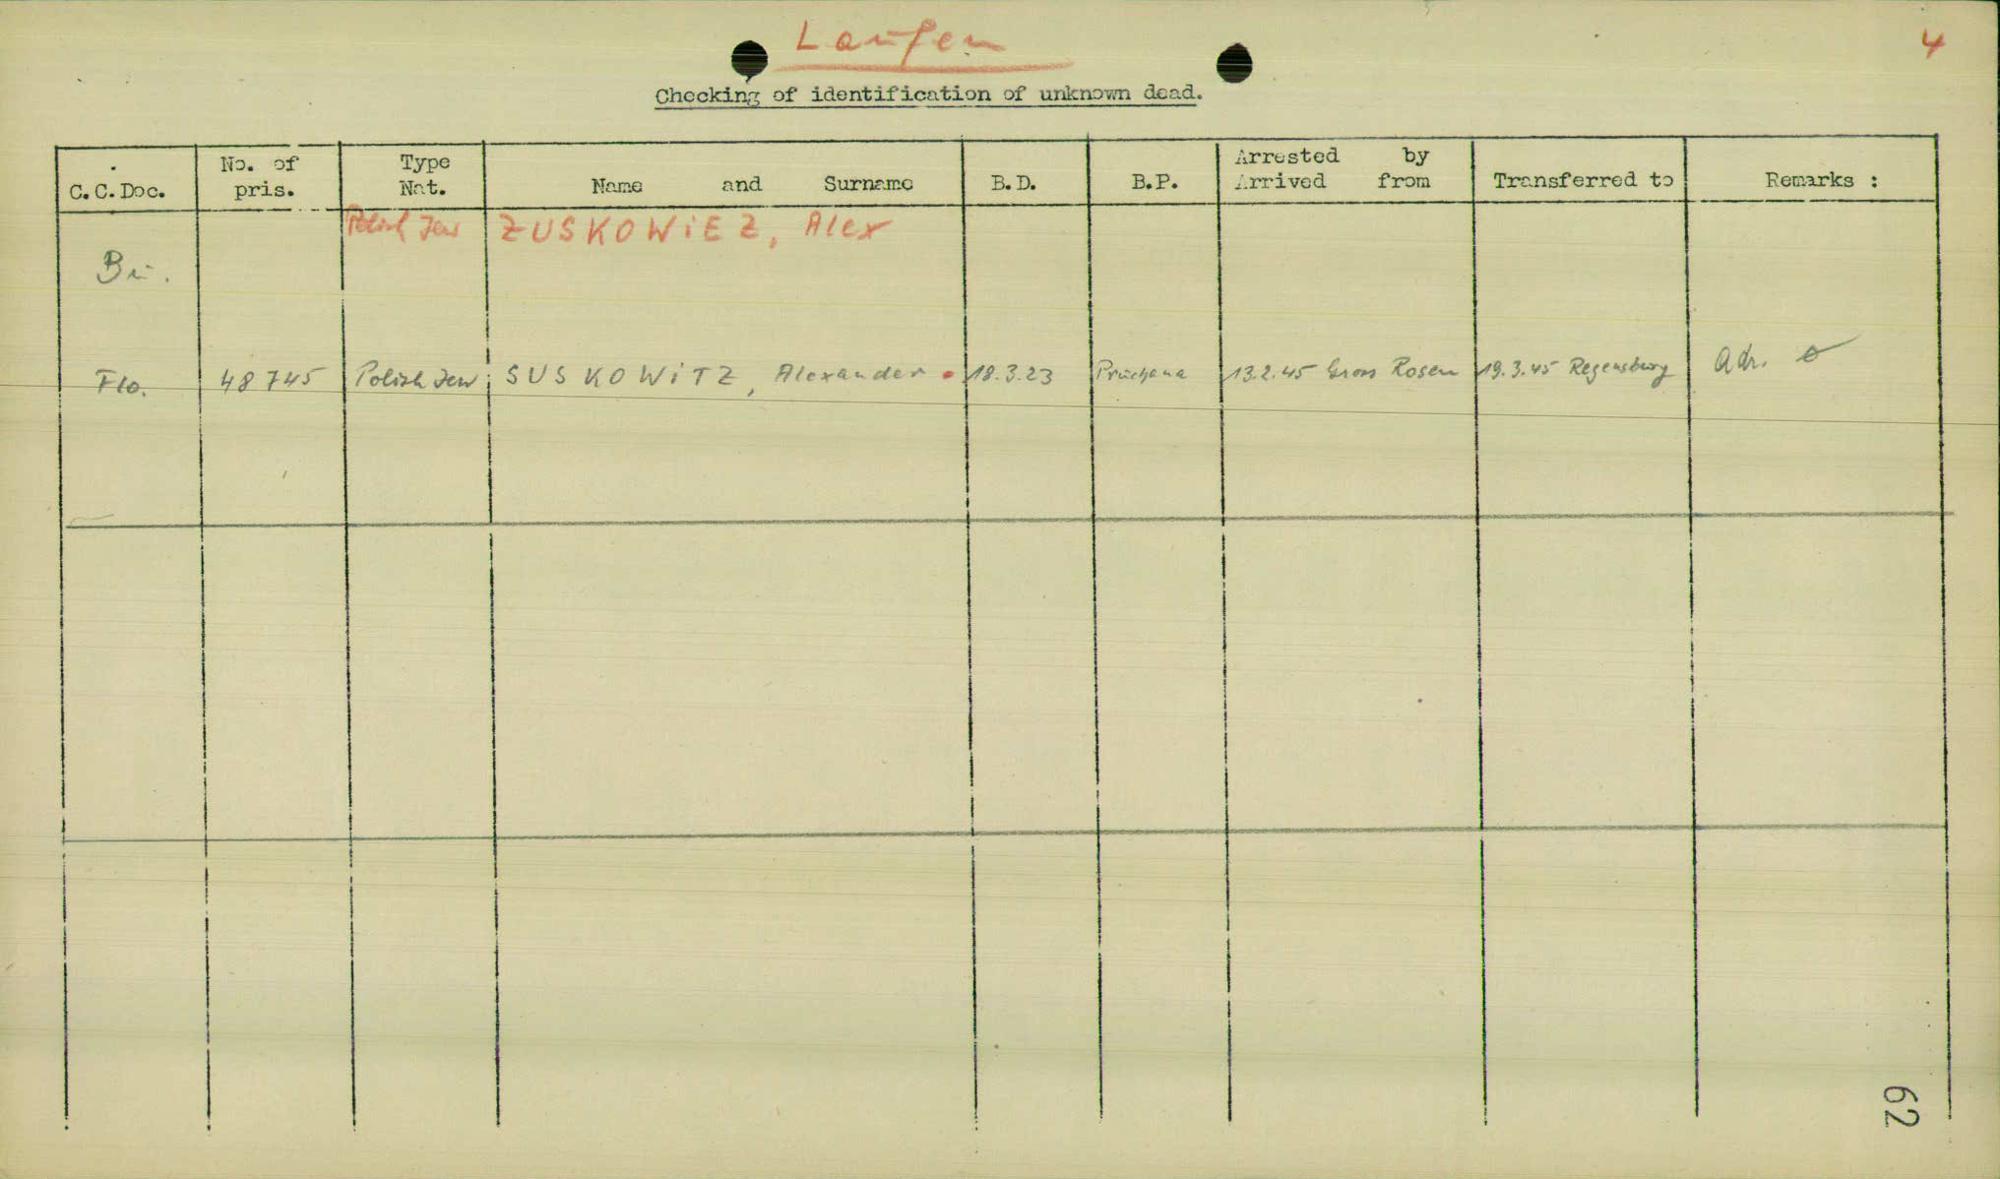 Laufen
4
Checking of identification of unknown dead.
C.C.Doc. No. of pris. Type Nat. Name and Surname B.D. B.P. Arrested by Arrived from Transferred to Remarks :
Polish Jew ZUSKOWiEZ, Alex
Bu.
Flo. 48745 Polish Jew SUSKOWiTZ, Alexander 18.3.23 13.2.45 Gross Rosen 19.3.45 Regensburg Adr.
62